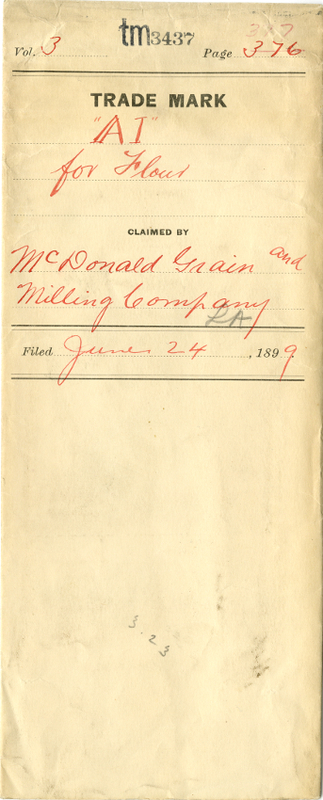 tm3437
Vol. 3 Page 376
TRADE MARK
"A I"
for Flour
CLAIMED BY
McDonald Grain and
Milling Company
LA
Filed June 24, 1899.
323